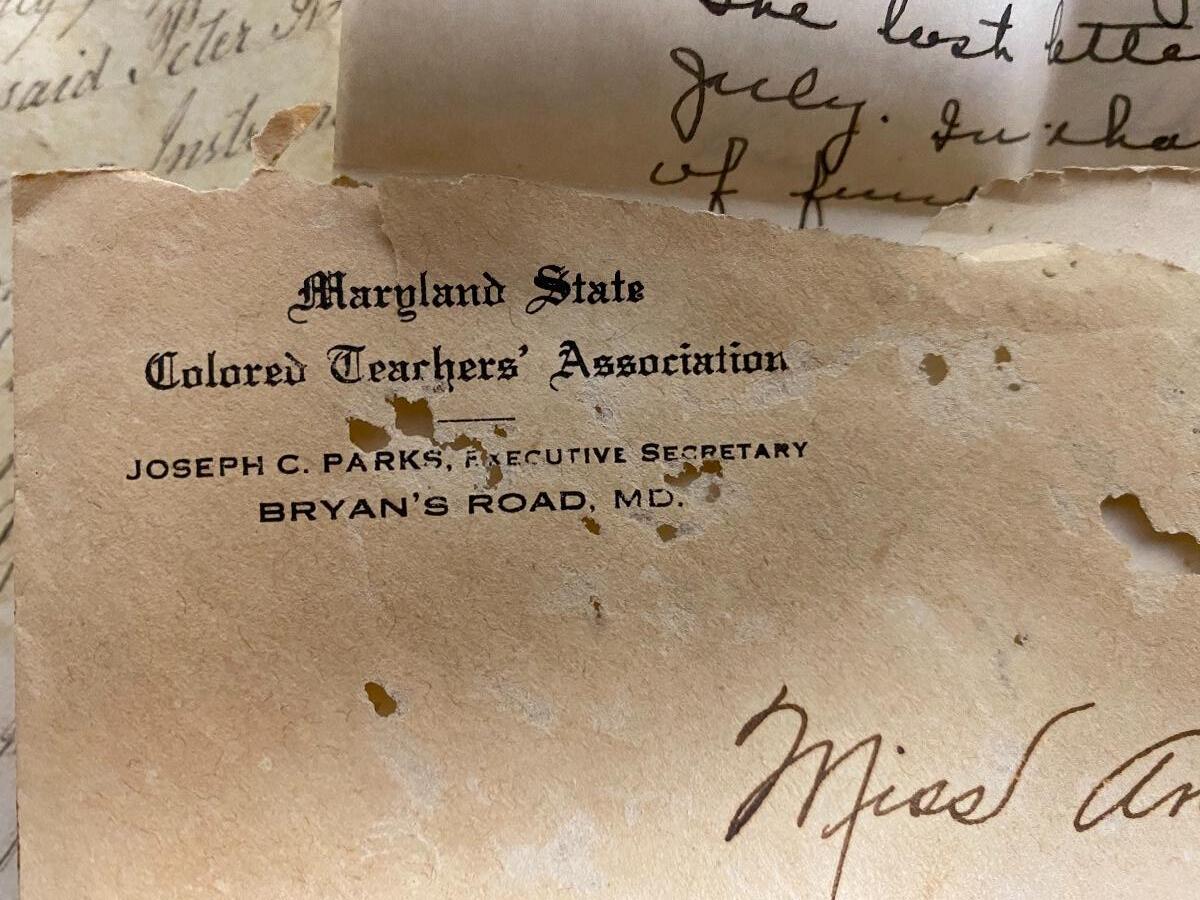 said Peter
the last lette
July. In cha
of fun
Maryland State
Colored Teachers' Association
JOSEPH C. PARKS, EXECUTIVE SECRETARY
BRYAN'S ROAD, MD.
Miss An